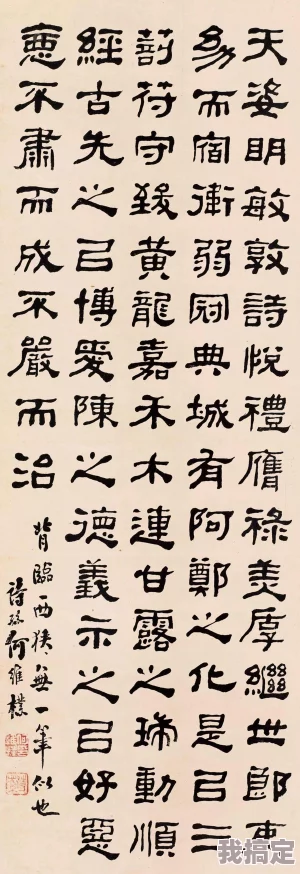 天姿明敏敦詩悅禮膺祿美厚繼世郎吏
幼而宿衛弱冠典城有阿鄭之化是㠯三
莂苻守致黃龍嘉禾木連甘露之瑞動順
經古先之㠯博愛陳之德義示之㠯好惡
不肅而成不嚴而治
背臨西狹無一筆似也
詩孫何維樸
我搞定